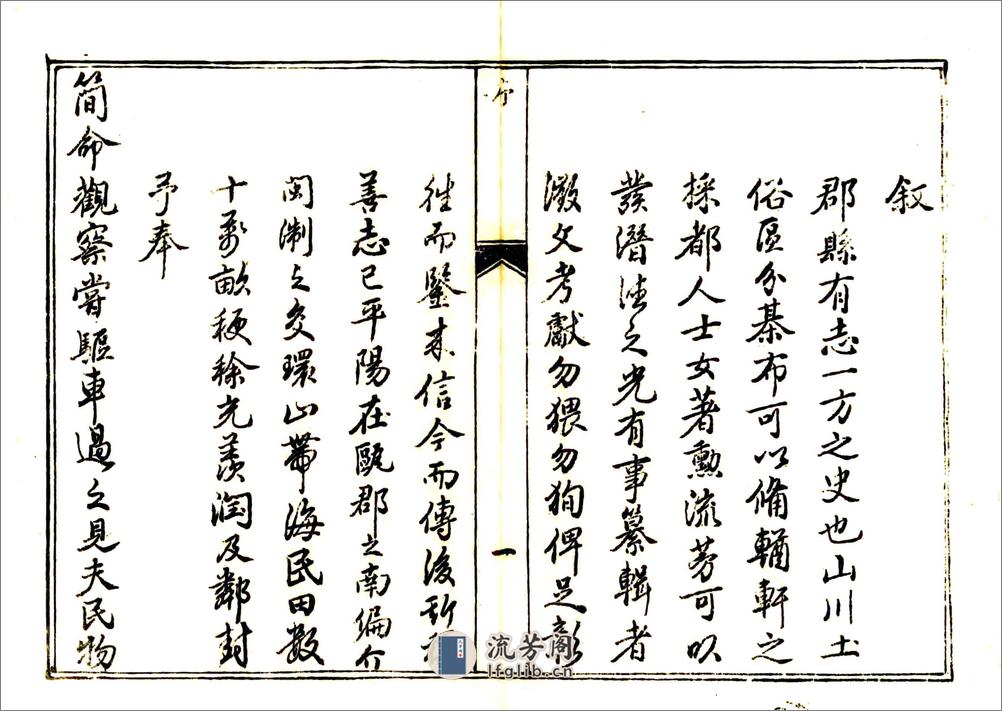 叙
郡縣有志一方之史也山川土
俗區分棊布可以俻輶軒之
採都人士女著勳流芳可以
發潛德之光有事纂輯者
徴文考獻勿猥勿狥俾足彰
序
一
徃而鑒来信今而傳後斯
善志已平陽在甌郡之南編介
閩淛之交環山帶海民田数
十萬畝稉稌充羨润及鄰封
予奉
簡命觀察嘗驅車過之見夫民物
流芳阁
lfglib.cn